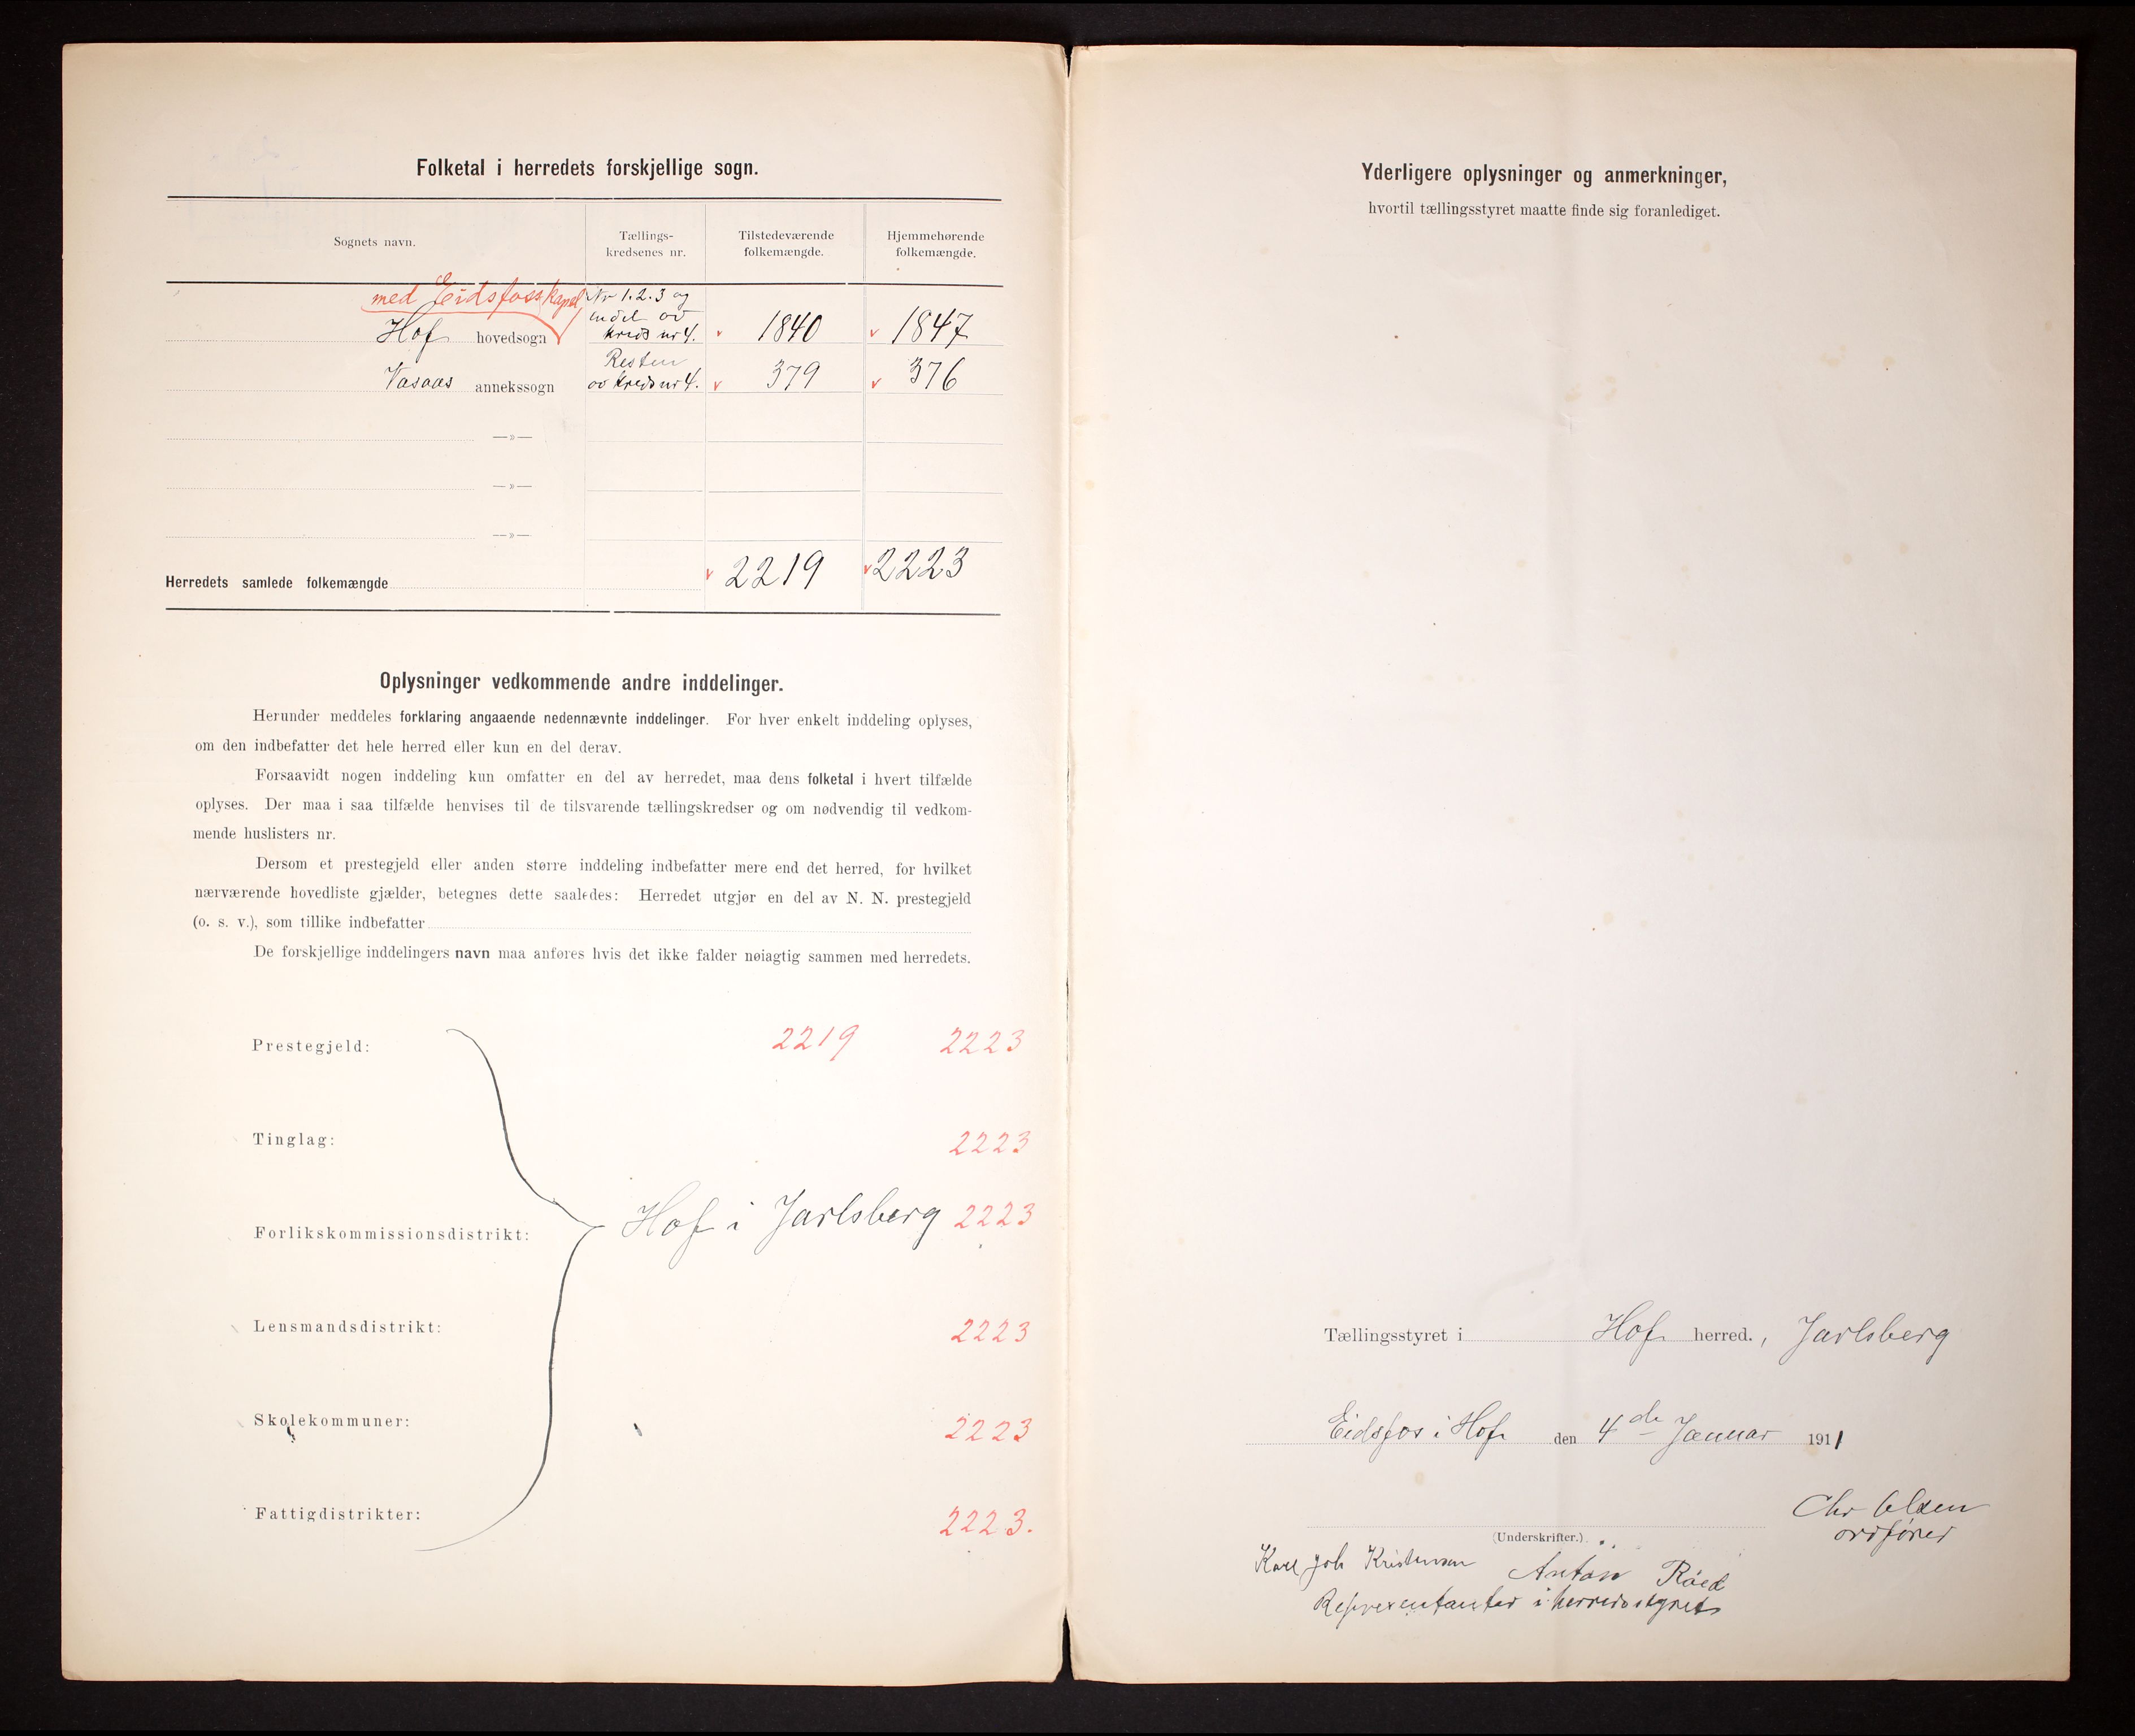 Folketal i herredets forskjellige sogn.
Sognets navn.
Tællings-
kredsenes nr.
Tilstedeværende
folkemængde.
Hjemmehørende
folkemængde.
med Eidsfoss kapel
Nr 1.2.3 og
endel av
Hof hovedsogn kreds nr 4. 1840 1847
Resten
Vasaas annekssogn av kreds nr 4. 379 376
—»—
—»—
—»—
Herredets samlede folkemængde 2219 2223
Oplysninger vedkommende andre inddelinger.
Herunder meddeles forklaring angaaende nedennævnte inddelinger. For hver enkelt inddeling oplyses,
om den indbefatter det hele herred eller kun en del derav.
Forsaavidt nogen inddeling kun omfatter en del av herredet, maa dens folketal i hvert tilfælde
oplyses. Der maa i saa tilfælde henvises til de tilsvarende tællingskredser og om nødvendig til vedkom-
mende huslisters nr.
Dersom et prestegjeld eller anden større inddeling indbefatter mere end det herred, for hvilket
nærværende hovedliste gjælder, betegnes dette saaledes: Herredet utgjør en del av N. N. prestegjeld
(o. s. v.), som tillike indbefatter
De forskjellige inddelingers navn maa anføres hvis det ikke falder nøiagtig sammen med herredets.
Prestegjeld: 2219 2223
Tinglag: 2223
Forlikskommissionsdistrikt: Hof i Jarlsberg 2223
Lensmandsdistrikt: 2223
Skolekommuner: 2223
Fattigdistrikter: 2223.
Yderligere oplysninger og anmerkninger,
hvortil tællingsstyret maatte finde sig foranlediget.
Tællingsstyret i Hof herred., Jarlsberg
Eidsfos i Hof den 4de Januar 1911
Chr Olsen
ordfører
(Underskrifter.)
Karl Joh Kristensen Anton Röed
Representanter i herredsstyret